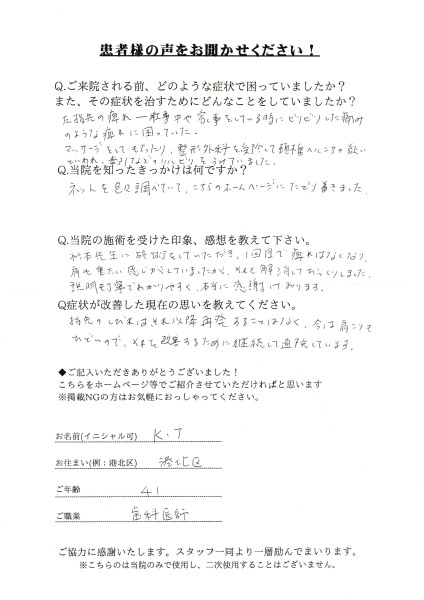 患者様の声をお聞かせください！
Q.ご来院される前、どのような症状で困っていましたか？
また、その症状を治すためにどんなことをしていましたか？
左指先の痺れ 仕事中や家事をしている時にピリピリした痛み
のような痺れに困っていた。
マッサージをしてもらったり、整形外科を受診して頚椎ヘルニアの疑い
といわれ、牽引などのリハビリをうけていました。
Q.当院を知ったきっかけは何ですか？
ネットを色々調べていて、こちらのホームページにたどり着きました。
Q.当院の施術を受けた印象、感想を教えて下さい。
杉本先生に施術をしていただき、1回目で痺れはなくなり、
肩も重たい感じがしていましたが、それも解消してびっくりしました。
説明も丁寧でわかりやすく、本当に感謝しております。
Q症状が改善した現在の思いを教えてください。
指先のしびれはそれ以降再発することはなく、今は肩こりも
ひどいので、それを改善するために継続して通院しています。
◆ご記入いただきありがとうございました！
こちらをホームページ等でご紹介させていただければと思います
※掲載NGの方はお気軽におっしゃってください。
お名前(イニシャル可) K.T
お住まい(例：港北区) 港北区
ご年齢 41
ご職業 歯科医師
ご協力に感謝いたします。スタッフ一同より一層励んでまいります。
※こちらのは当院のみで使用し、二次使用することはございません。